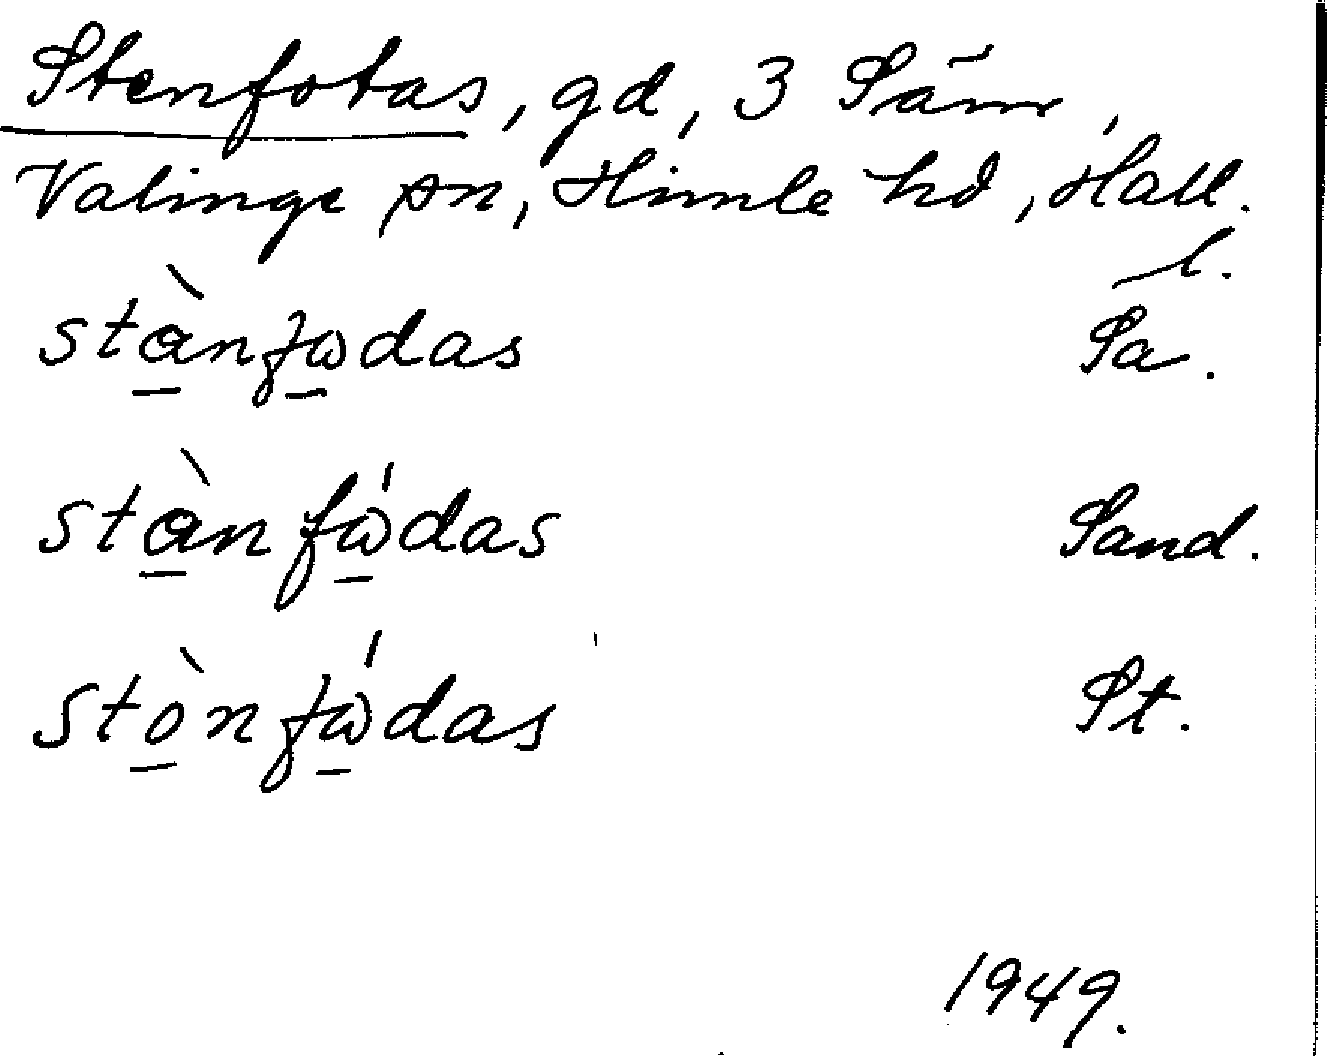 Stenfotas, gd, 3 Säm,
Valinge sn, Himle hd, Hall.
l.
stànfωdas Sa.
stànfώdas Sand.
stònfώdas St.
1949.